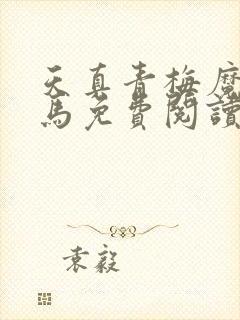 天真青梅魔
馬免費閱讀
袁毅